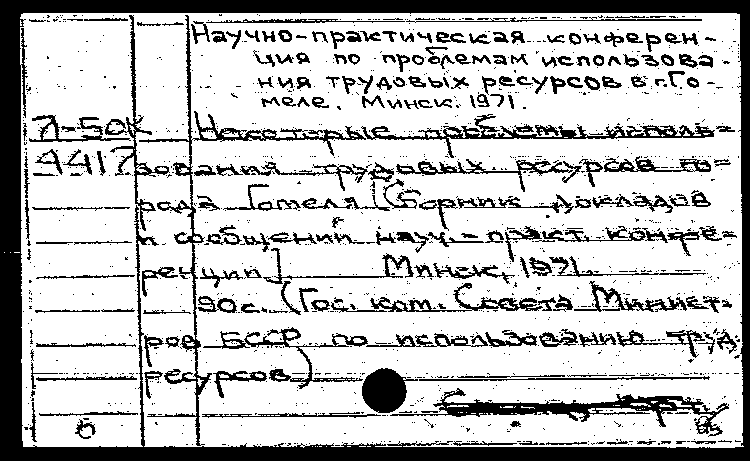 Научно-практическая конферен-
ция по проблемам использова-
ния трудовых ресурсов в г. Го-
меле. Минск. 1971.
Л-50К Некоторые проблемы исполь=
4417 зования трудовых ресурсов го=
рода Гомеля [Сборник докладов
и сообщений науч.-практ. конфе=
ренции]. Минск, 1971.
90с. (Гос. ком. Совета Минист=
ров БССР по использованию труд.
ресурсов)
б